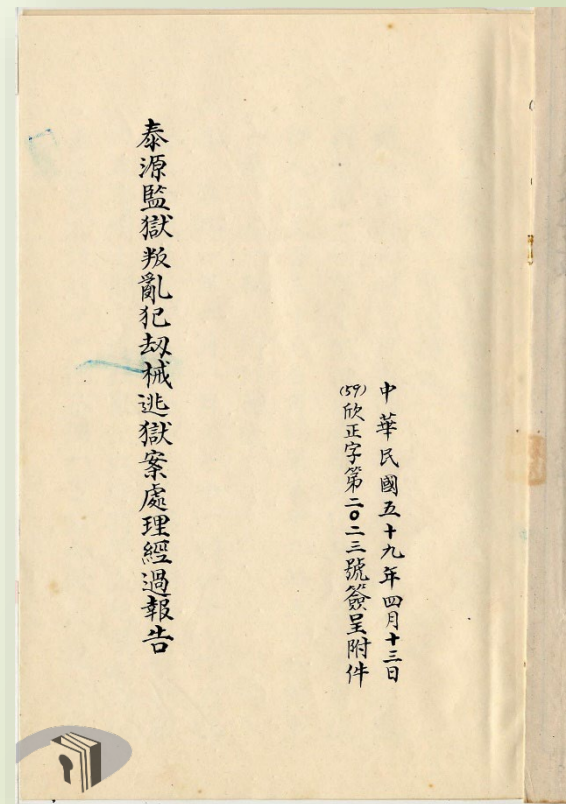 中華民國五十九年四月十三日
(59)欣正字第二〇二三號簽呈附件
泰源監獄叛亂犯劫械逃獄案處理經過報告